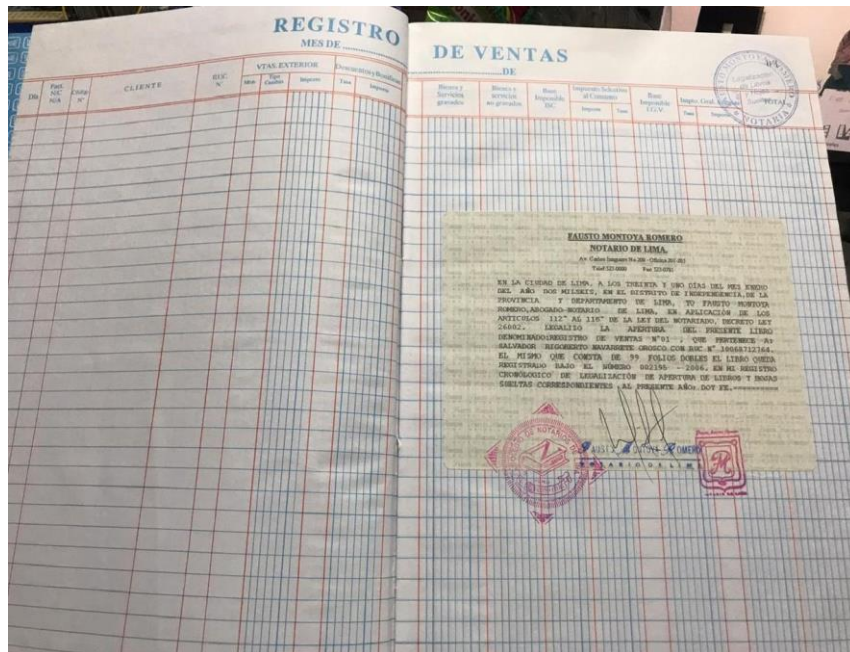 REGISTRO
MES DE
DE VENTAS
DE
VTAS. EXTERIOR
Día
CLIENTE
RUC
N°
Importe
Tasa
Importe
Bienes y
Servicios
gravados
Bienes y
servicios
no gravados
Base
Imponible
ISC
Impuesto Selectivo
al Consumo
Importe
Tasa
Base
Imponible
I.G.V.
Tasa
TOTAL
NOTARIA
FAUSTO MONTOYA ROMERO
NOTARIO DE LIMA.
EN LA CIUDAD DE LIMA, A LOS TREINTA Y UNO DÍAS DEL MES ENERO
DEL AÑO DOS MILSEIS, EN EL DISTRITO DE INDEPENDENCIA, DE LA
PROVINCIA Y DEPARTAMENTO DE LIMA, YO FAUSTO MONTOYA
ROMERO, ABOGADO NOTARIO DE LIMA, EN APLICACIÓN DE LOS
ARTICULOS 112° AL 116° DE LA LEY DEL NOTARIADO, DECRETO LEY
26002. LEGALIZO LA APERTURA DEL PRESENTE LIBRO
DENOMINADO:REGISTRO DE VENTAS N°01 , QUE PERTENECE A:
SALVADOR RIGOBERTO NAVARRETE OROSCO CON RUC N° 10068712764.
EL MISMO QUE CONSTA DE 99 FOLIOS DOBLES EL LIBRO QUEDA
REGISTRADO BAJO EL NÚMERO 002195 - 2006, EN MI REGISTRO
CRONÓLOGICO DE LEGALIZACIÓN DE APERTURA DE LIBROS Y HOJAS
SUELTAS CORRESPONDIENTES AL PRESENTE AÑO: DOY FE.
NOTARIO DE LIMA